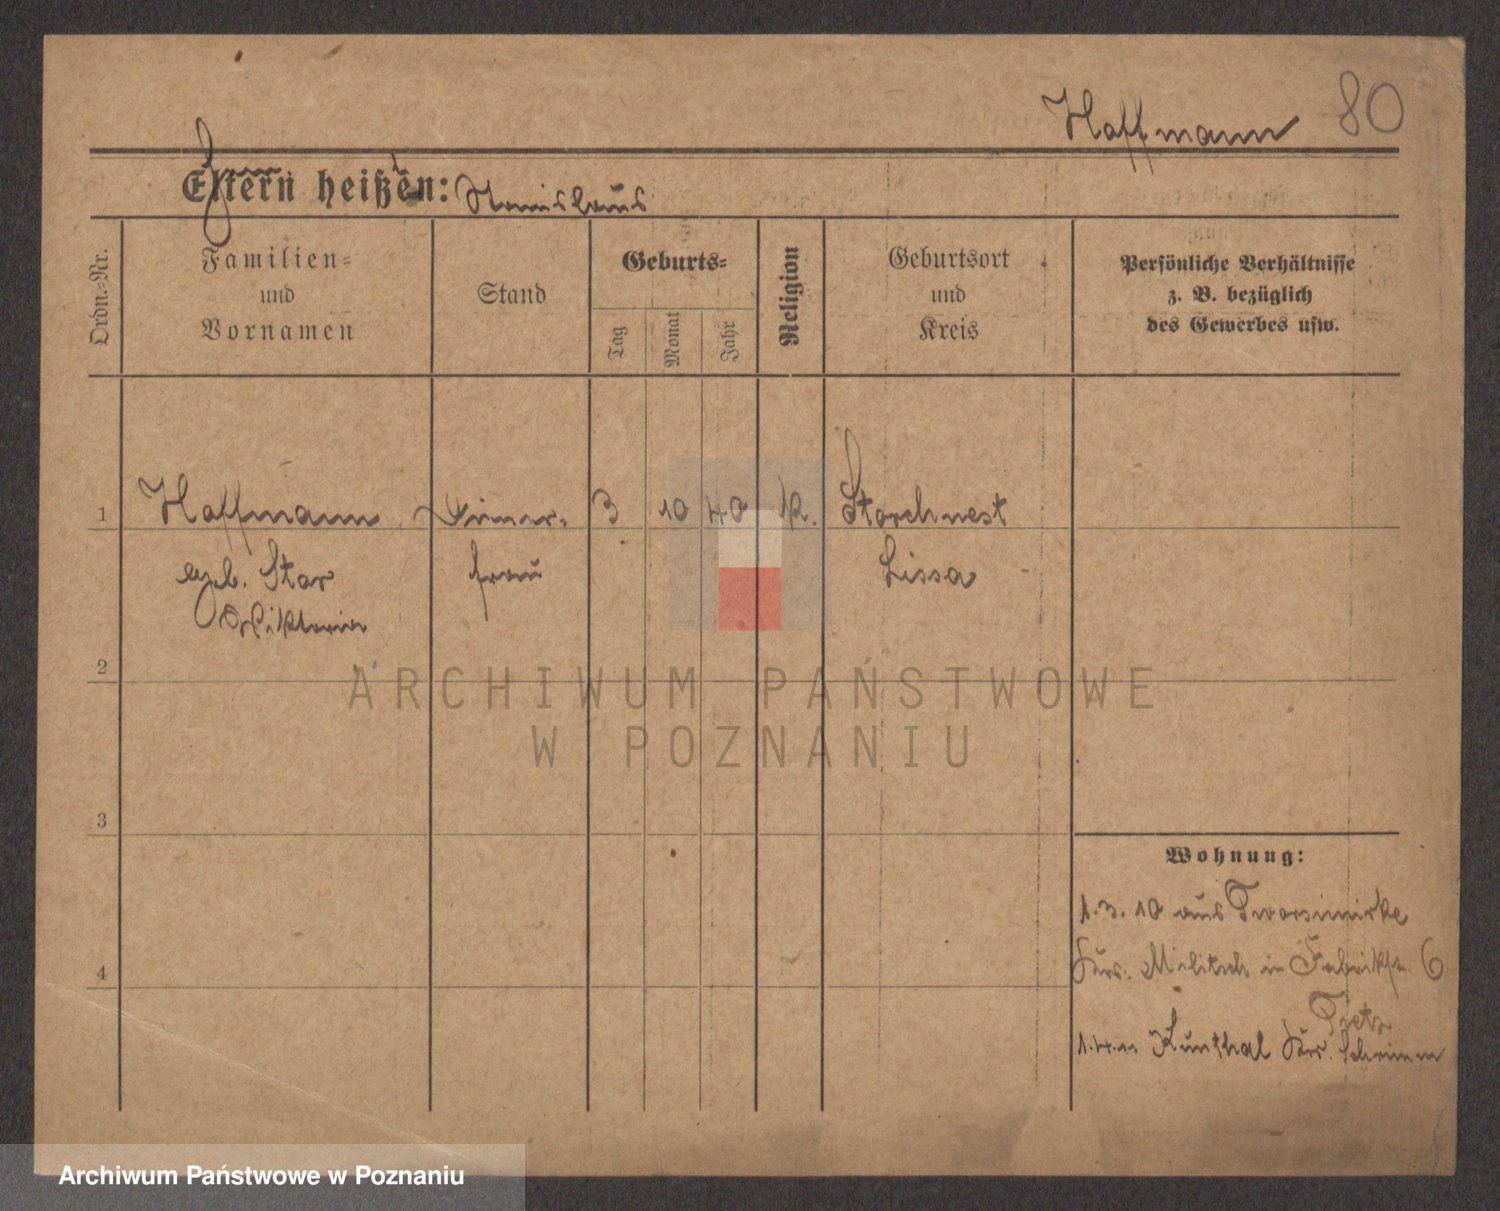 Hoffmann 80
Eltern heißen: Stanislaus
Ordn.-Nr.
Familien-
und
Vornamen
Stand
Geburts-
Tag
Monat
Jahr
Religion
Geburtsort
und
Kreis
Persönliche Verhältnisse
z. B. bezüglich
des Gewerbes usw.
1 Hoffmann 3 10 40 Storchnest
geb. Star frau Lissa
Wiktoria
2
ARCHIWUM PAŃSTWOWE
W POZNANIU
3
Wohnung:
1.3.10 aus
Krs. Militsch in Fabrikst. 6
4
Tietz
Kunthal Krs. Schrimm
Archiwum Państwowe w Poznaniu